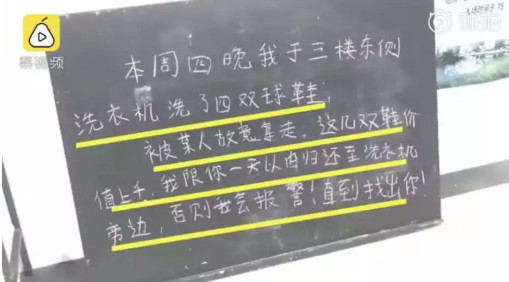 梨视频
本周四晚我于三楼东侧
洗衣机洗了四双球鞋,
被某人放意拿走,这几双鞋价
值上千,我限你一天以内归还至洗衣机
旁边,否则我会报警!直到找出你!